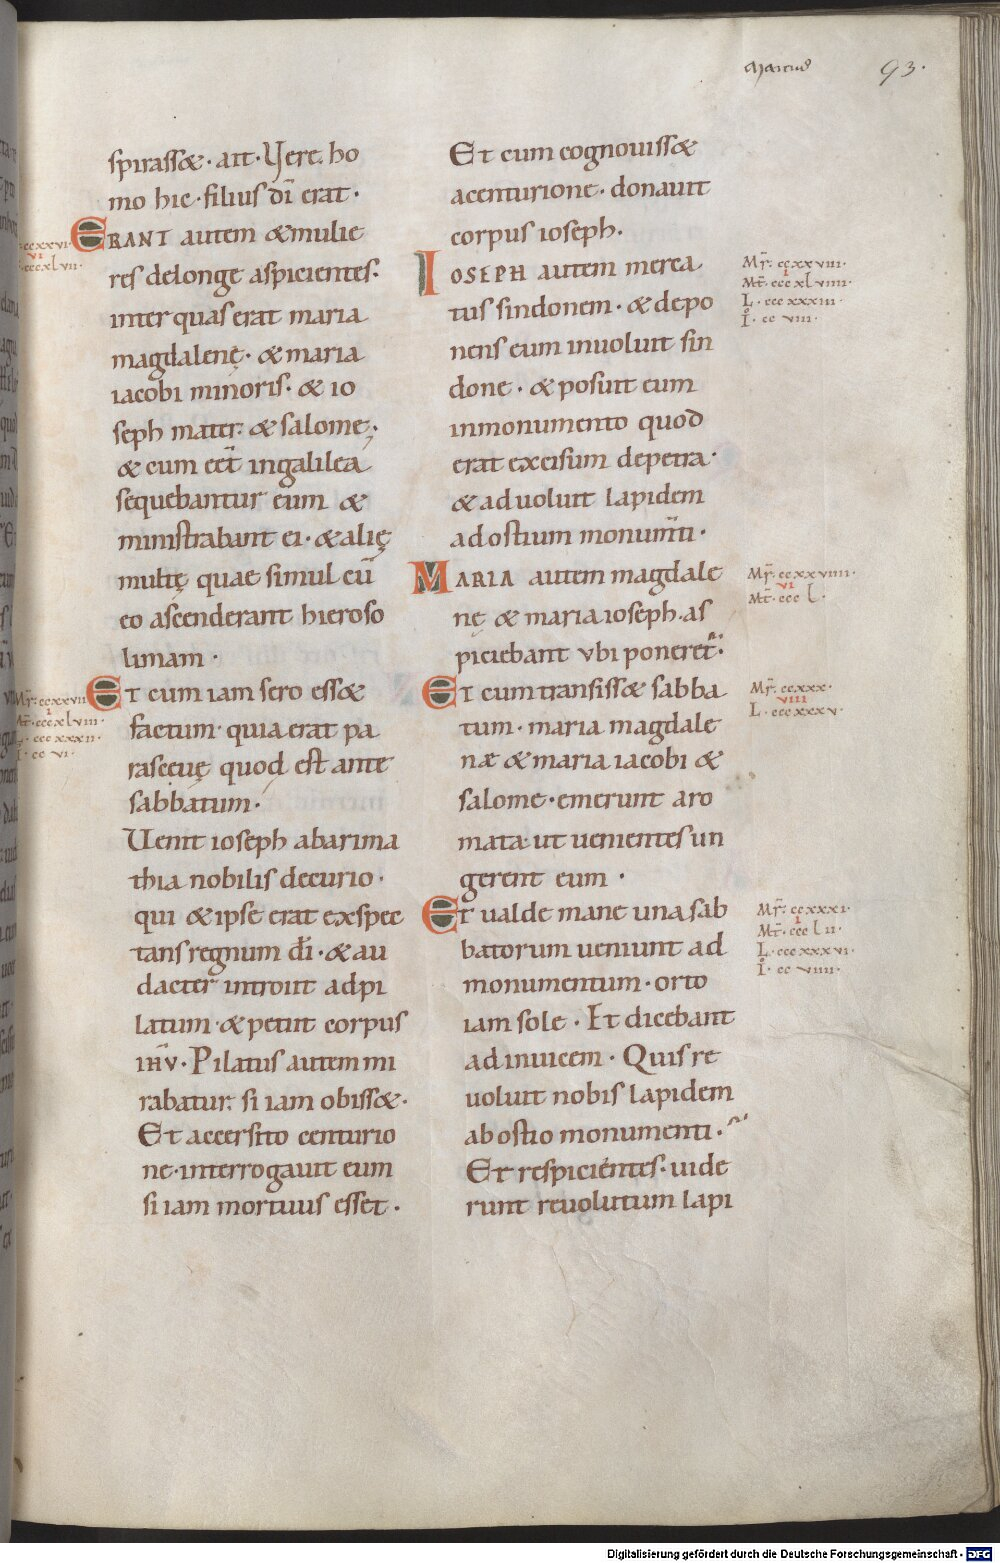 Marcus 93.
spirass&. ait. Vere. ho
mo hic. filius dī erat.
ERANT autem & mulie
res delonge aspicientes.
inter quas erat maria
magdalenę. & maria
iacobi minoris. & io
seph mater. & salome;.
& cum eēt ingalilea
sequebantur eum &
ministrabant ei. & alię
multę quae simul cū
eo ascenderant hieroso
limam.
Et cum iam sero ess&
factum. quia erat pa
rasceuę quod est ante
sabbatum.
Uenit ioseph abarima
thia nobilis decurio.
qui & ipse erat exspec
tans regnum dī. & au
dacter introiit adpi
latum. & petiit corpus
ihū. Pilatus autem mi
rabatur. si iam obiss&.
Et accersito centurio
ne. interrogauit eum
si iam mortuus esset.
ccxxvi
vi
cccxlvii.
Mr̄. ccxxvii
i
Mt̄. cccxlviii.
L. cccxxxii.
I. ccvi.
Et cum cognouiss&
acenturione. donauit
corpus ioseph.
IOSEPH autem merca
tus sindonem. & depo
nens eum inuoluit sin
done. & posuit eum
inmonumento quod
erat excisum depetra.
& aduoluit lapidem
adostium monumīti.
MARIA autem magdale
nę & maria ioseph. as
piciebant ubi poneret̄.
Et cum transiss& sabba
tum. maria magdale
næ & maria iacobi &
salome. emerunt aro
mata. ut uenientes un
gerent eum.
Et ualde mane una sab
batorum ueniunt ad
monumentum. orto
iam sole. Et dicebant
adinuicem. Quis re
uoluit nobis lapidem
abostio monumenti.
Et respicientes. uide
runt reuolutum lapi
Mr̄. ccxxviii.
i
Mt̄. cccxlviiii.
L. cccxxxiii.
I. ccviii.
Mr̄. ccxxviiii.
vi
Mt̄. cccl.
Mr̄. ccxxx.
viii
L. cccxxxv.
Mr̄. ccxxxi.
i
Mt̄. ccclii.
L. cccxxxvi.
I. ccviiii.
Digitalisierung gefördert durch die Deutsche Forschungsgemeinschaft - DFG